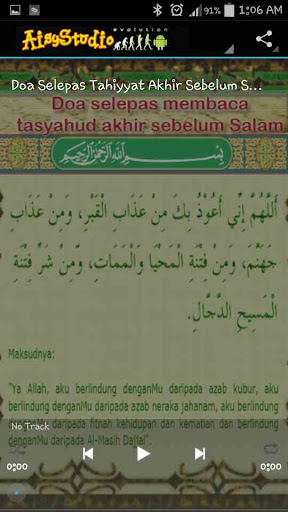 91%
1:06 AM
AisyStudio
evolution
Doa Selepas Tahiyyat Akhir Sebelum S...
Doa selepas membaca
tasyahud akhir sebelum Salam
بِسْمِ اللَّهِ الرَّحْمَنِ الرَّحِيمِ
أَللَّهُمَّ إِنِّي أَعُوْذُ بِكَ مِنْ عَذَابِ الْقَبْرِ، وَمِنْ عَذَابِ
جَهَنَّمَ، وَمِنْ فِتْنَةِ الْمَحْيَا وَالْمَمَاتِ، وَمِنْ شَرِّ فِتْنَةِ
الْمَسِيحِ الدَّجَّالِ.
Maksudnya:
"Ya Allah, aku berlindung denganMu daripada azab kubur, aku
berlindung denganMu daripada azab neraka jahanam, aku berlindung
denganMu daripada fitnah kehidupan dan kematian dan berlindung
denganMu daripada Al-Masih Dajjal".
No Track
0:00
0:00